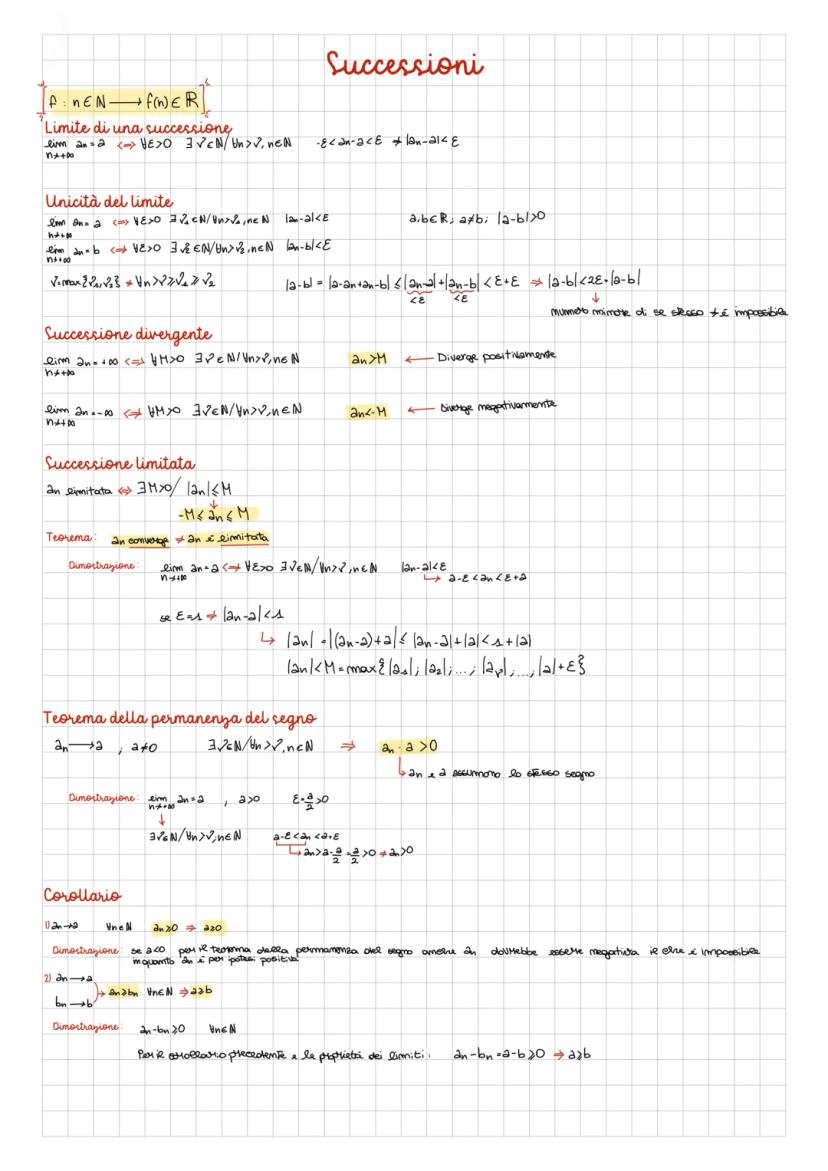 Successioni
f : n ∈ N → f(n) ∈ R
Limite di una successione
lim an = a ⇔ ∀ε>0 ∃ν∈N / ∀n>ν, n∈N -ε<an-a<ε ⇒ |an-a|<ε
n→+∞
Unicità del limite
lim an = a ⇔ ∀ε>0 ∃ν1∈N / ∀n>ν1, n∈N |an-a|<ε a,b∈R; a≠b; |a-b|>0
n→+∞
lim an = b ⇔ ∀ε>0 ∃ν2∈N / ∀n>ν2, n∈N |an-b|<ε
n→+∞
ν=max{ν1,ν2} ⇒ ∀n>ν≥ν1≥ν2 |a-b| = |a-an+an-b| ≤ |an-a|+|an-b| < ε+ε ⇒ |a-b|<2ε=|a-b|
<ε <ε
numero minore di se stesso ⇒ è impossibile
Successione divergente
lim an = +∞ ⇔ ∀M>0 ∃ν∈N / ∀n>ν, n∈N an>M ← Diverge positivamente
n→+∞
lim an = -∞ ⇔ ∀M>0 ∃ν∈N / ∀n>ν, n∈N an<-M ← Diverge negativamente
n→+∞
Successione limitata
an limitata ⇔ ∃M>0 / |an|≤M
↓
-M ≤ an ≤ M
Teorema: an converge ⇒ an è limitata
Dimostrazione: lim an = a ⇔ ∀ε>0 ∃ν∈N / ∀n>ν, n∈N |an-a|<ε
n→+∞ ↳ a-ε<an<ε+a
se ε=1 ⇒ |an-a|<1
↳ |an| = |(an-a)+a| ≤ |an-a|+|a| < 1+|a|
|an|<M=max{|a1|; |a2|; ...; |aν|, ..., |a|+ε}
Teorema della permanenza del segno
an → a , a≠0 ∃ν∈N / ∀n>ν, n∈N ⇒ an · a > 0
↳ an e a assumono lo stesso segno
Dimostrazione: lim an = a , a>0 ε=a/2>0
n→+∞
↓
∃ν∈N / ∀n>ν, n∈N a-ε<an<a+ε
↳ an>a-a/2=a/2>0 ⇒ an>0
Corollario
1) an→a ∀n∈N an≥0 ⇒ a≥0
Dimostrazione: se a<0 per il teorema della permanenza del segno anche an dovrebbe essere negativa il che è impossibile
inquanto an è per ipotesi positiva
2) an → a
→ an≥bn ∀n∈N ⇒ a≥b
bn → b
Dimostrazione: an-bn≥0 ∀n∈N
Per il corollario precedente e le proprietà dei limiti: an-bn=a-b≥0 ⇒ a≥b